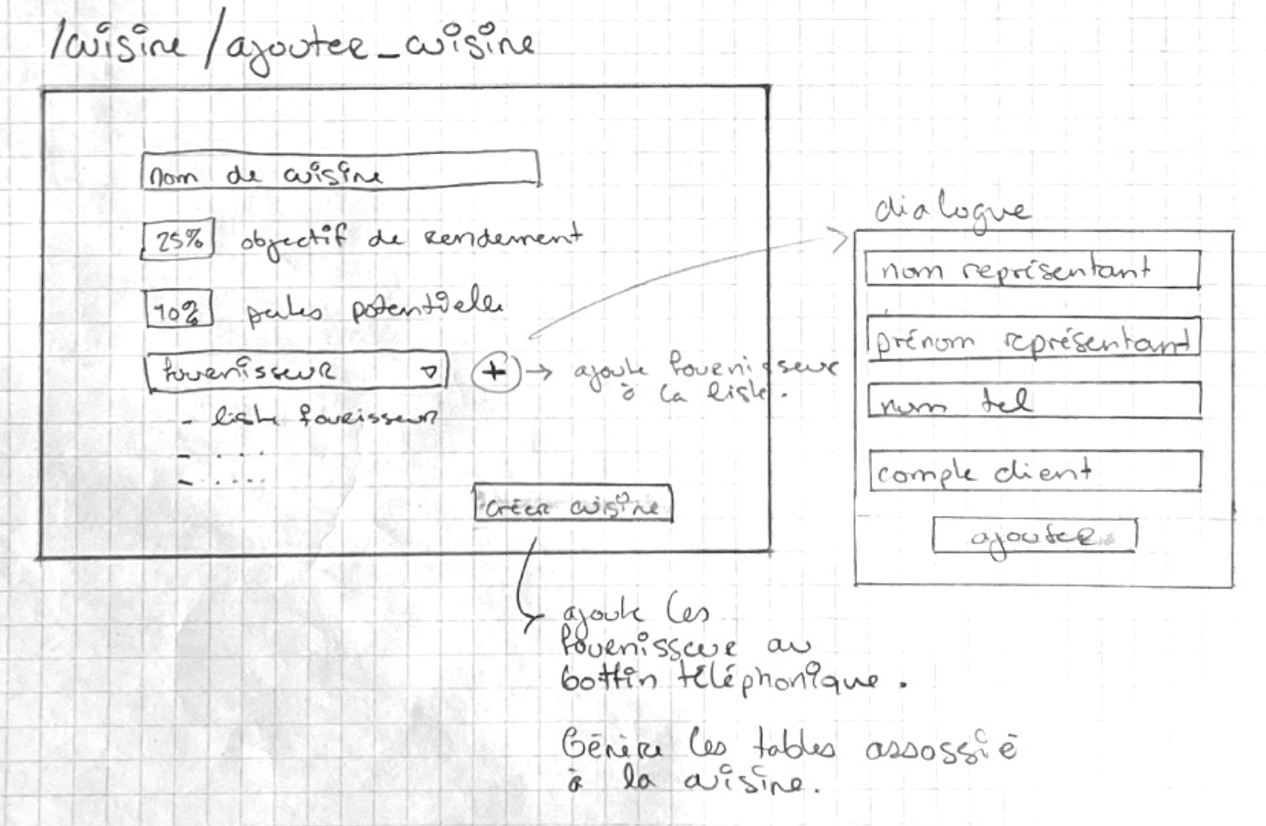 /cuisine/ajouter_cuisine
nom de cuisine
25% objectif de rendement
10% pertes potentielle
fournisseur
+ → ajoute fournisseur
à la liste.
- liste fournisseur
- ....
- ....
créer cuisine
ajoute les
fournisseur au
bottin téléphonique.
Génère les tables assossié
à la cuisine.
dialogue
nom représentant
prénom représentant
num tel
compte client
ajouter